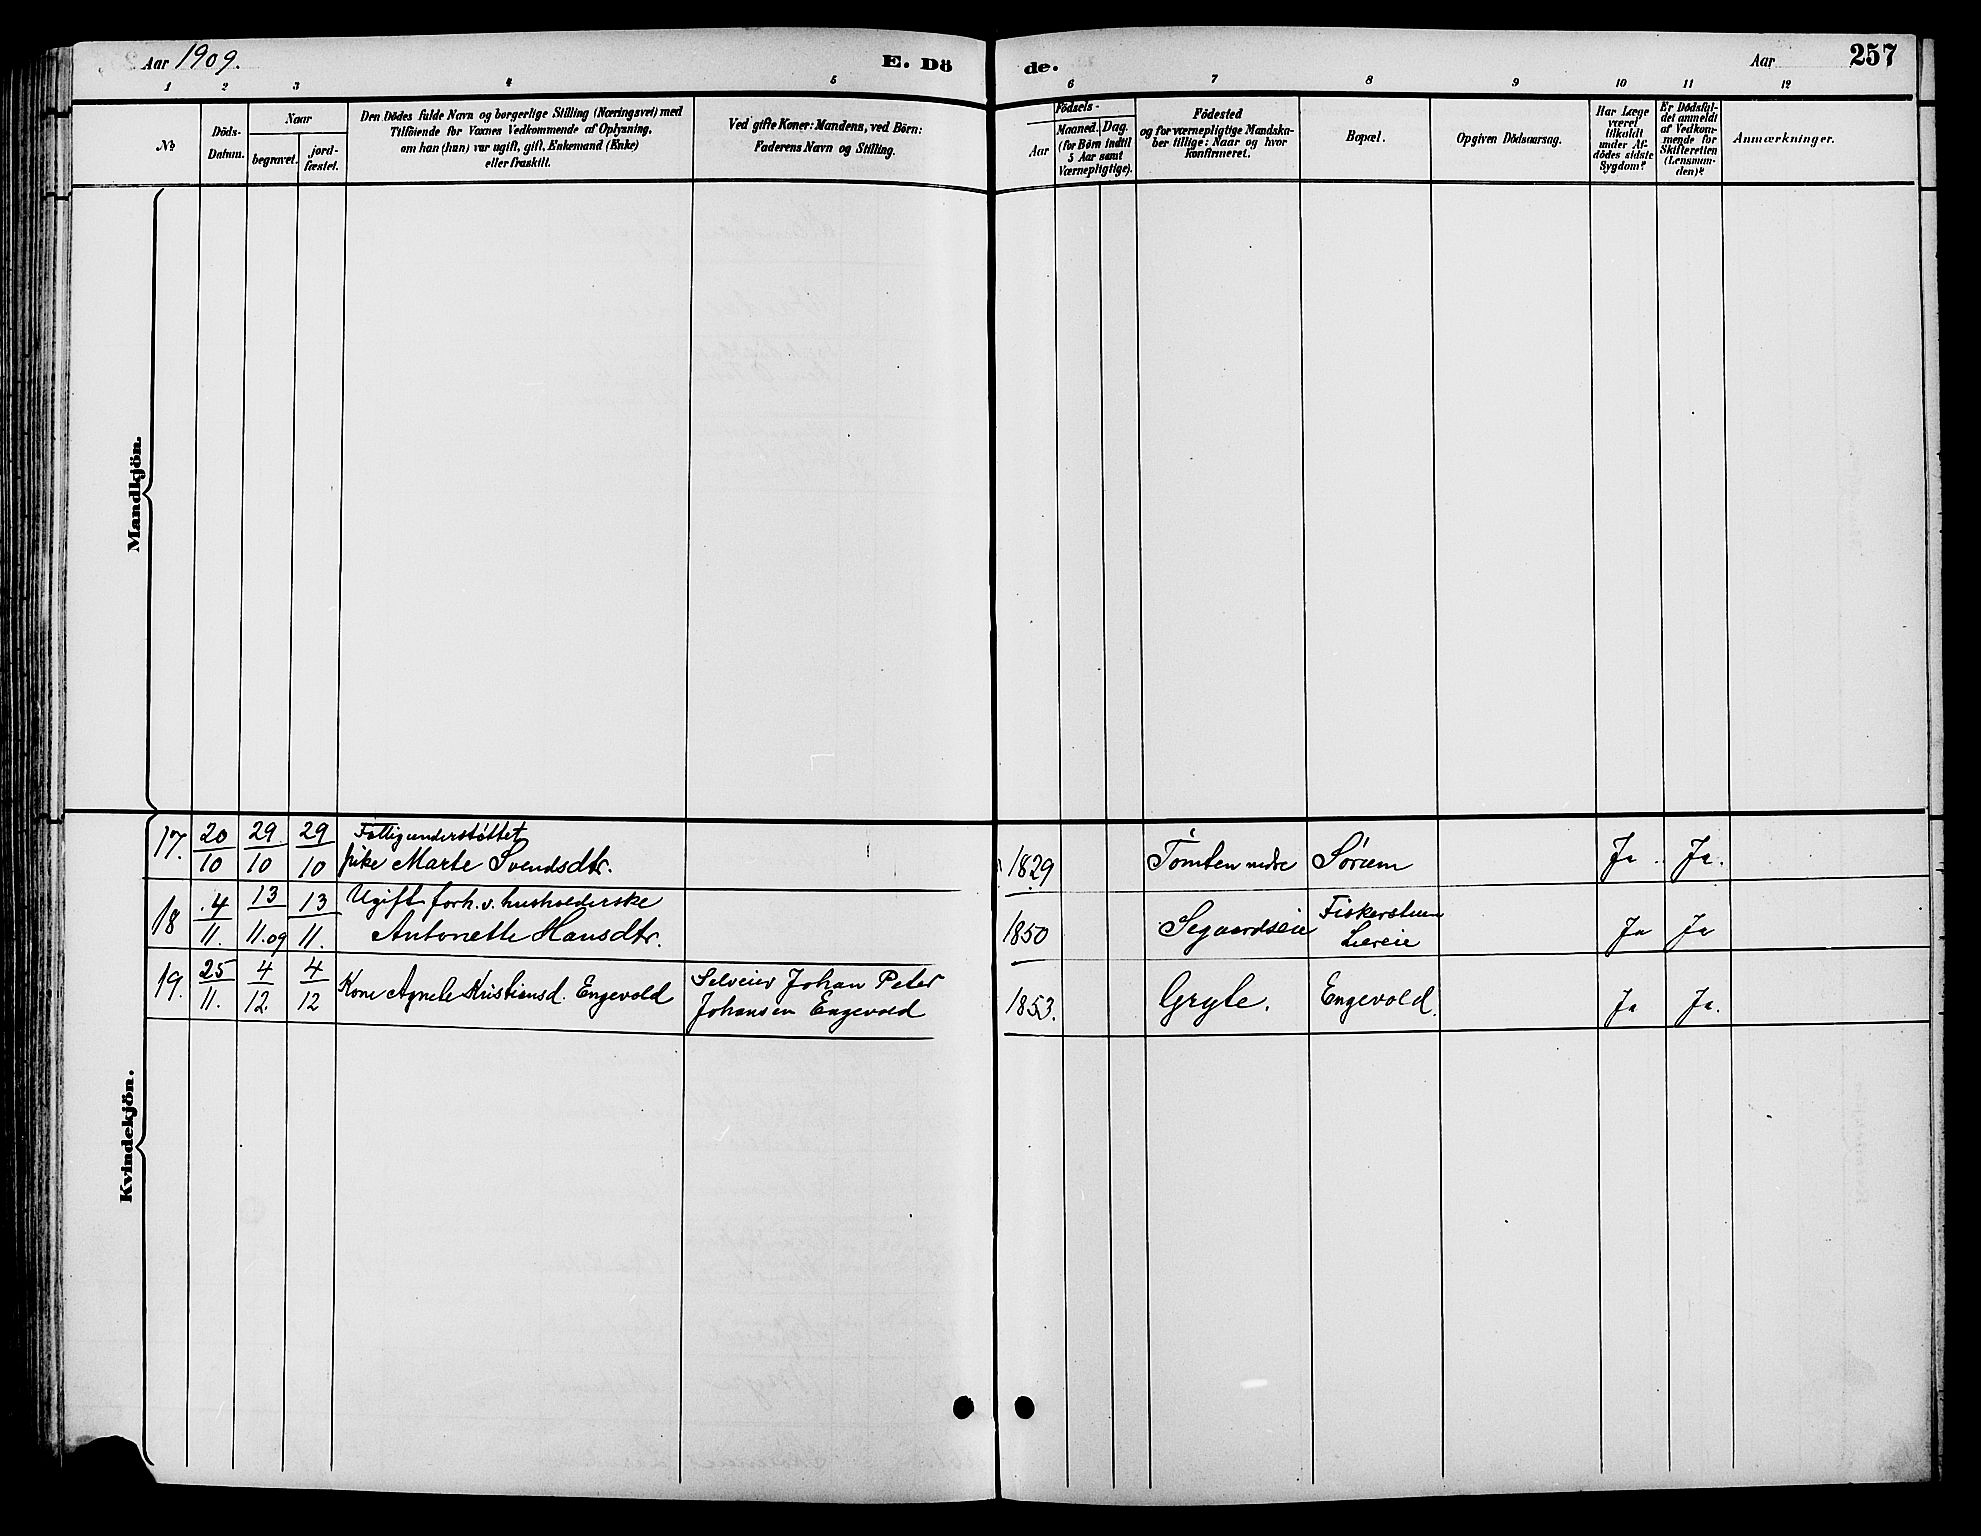 Aar 1909.
E. Dö
de.
Aar
257
1 2 3 4 5 6 7 8 9 10 11 12
№
Döds-
Datum.
Naar
begravet.
jord-
fæstet.
Den Dödes fulde Navn og borgerlige Stilling (Næringsvei) med
Tilföiende for Voxnes Vedkommende af Oplysning,
om han (hun) var ugift, gift, Enkemand (Enke)
eller fraskilt.
Ved gifte Koner: Mandens, ved Börn:
Faderens Navn og Stilling.
Födsels-
Aar
Maaned. Dag.
(for Börn indtil
5 Aar samt
Værnepligtige).
Födested
og for værnepligtige Mandska-
ber tillige: Naar og hvor
Konfirmeret.
Bopæl.
Opgiven Dödsaarsag.
Har Læge
været
tilkaldt
under Af-
dödes sidste
Sygdom?
Er Dödsfal-
det anmeldt
af Vedkom-
mende for
Skifteretten
(Lensman-
den)?
Anmærkninger.
Mandkjön.
Kvindekjön.
17. 20/10 29/10 29/10 Fattigunderstøttet
pike Marte Svendsdtr. 1829 Tomten nedre Ja. Ja.
18 4/11. 13/11.09 13/11. Ugift forh.v. husholderske
Antonette Hansdtr. 1850 Segaardseie Ja Ja
19. 25/11. 4/12. 4/12 Kone Agnete Kristiansd. Engevold Selveier Johan Peter
Johansen Engevold 1853. Gryte. Engevold. Ja Ja.